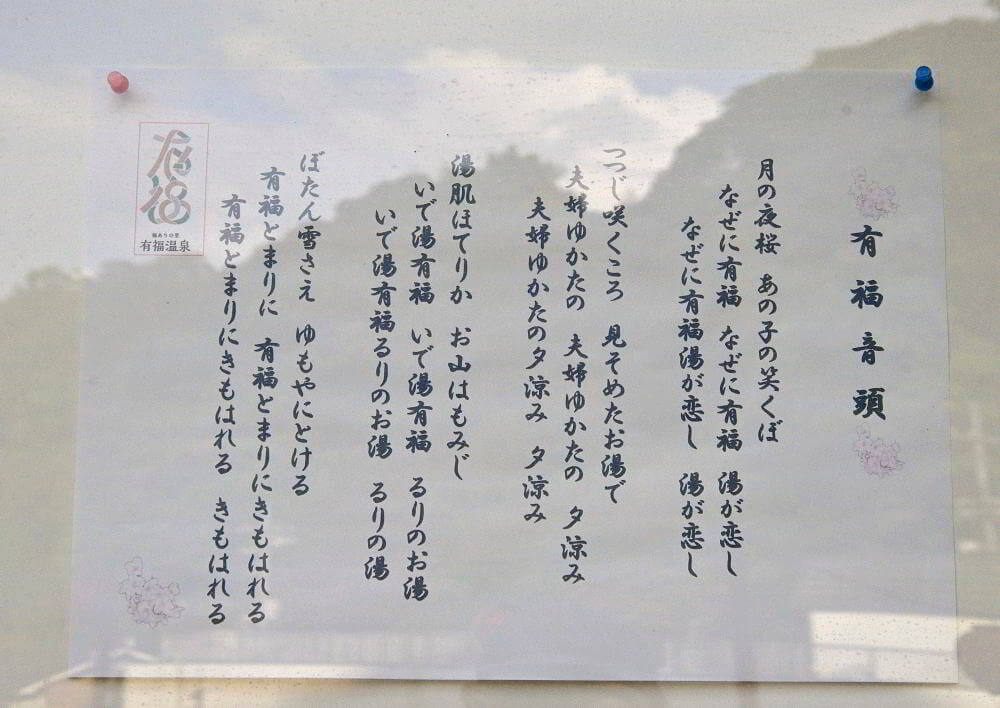 有福音頭
月の夜桜 あの子の笑くぼ
なぜに有福 なぜに有福 湯が恋し
なぜに有福湯が恋し 湯が恋し
つつじ咲くころ 見そめたお湯で
夫婦ゆかたの 夫婦ゆかたの 夕涼み
夫婦ゆかたの夕涼み 夕涼み
湯肌ほてりか お山はもみじ
いで湯有福 いで湯有福 るりのお湯
いで湯有福るりのお湯 るりの湯
ぼたん雪さえ ゆもやにとける
有福とまりに 有福とまりにきもはれる
有福とまりにきもはれる きもはれる
有福
福ありの里
有福温泉